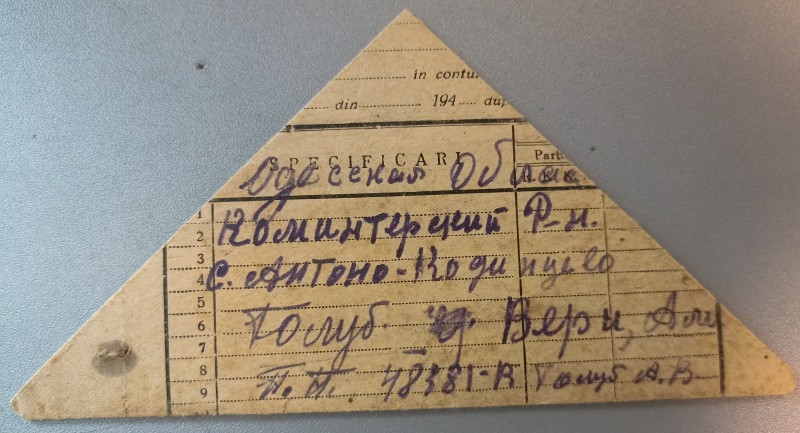 in contu
din 194 du
SPECIFICARI Part
Одесская Област
1
Коминтерский Р-н.
2
3
С. Антоно-Кодинцево
4
5
Голуб. Вери,
6
7
П.П. 48381-В Голуб А.В
8
9